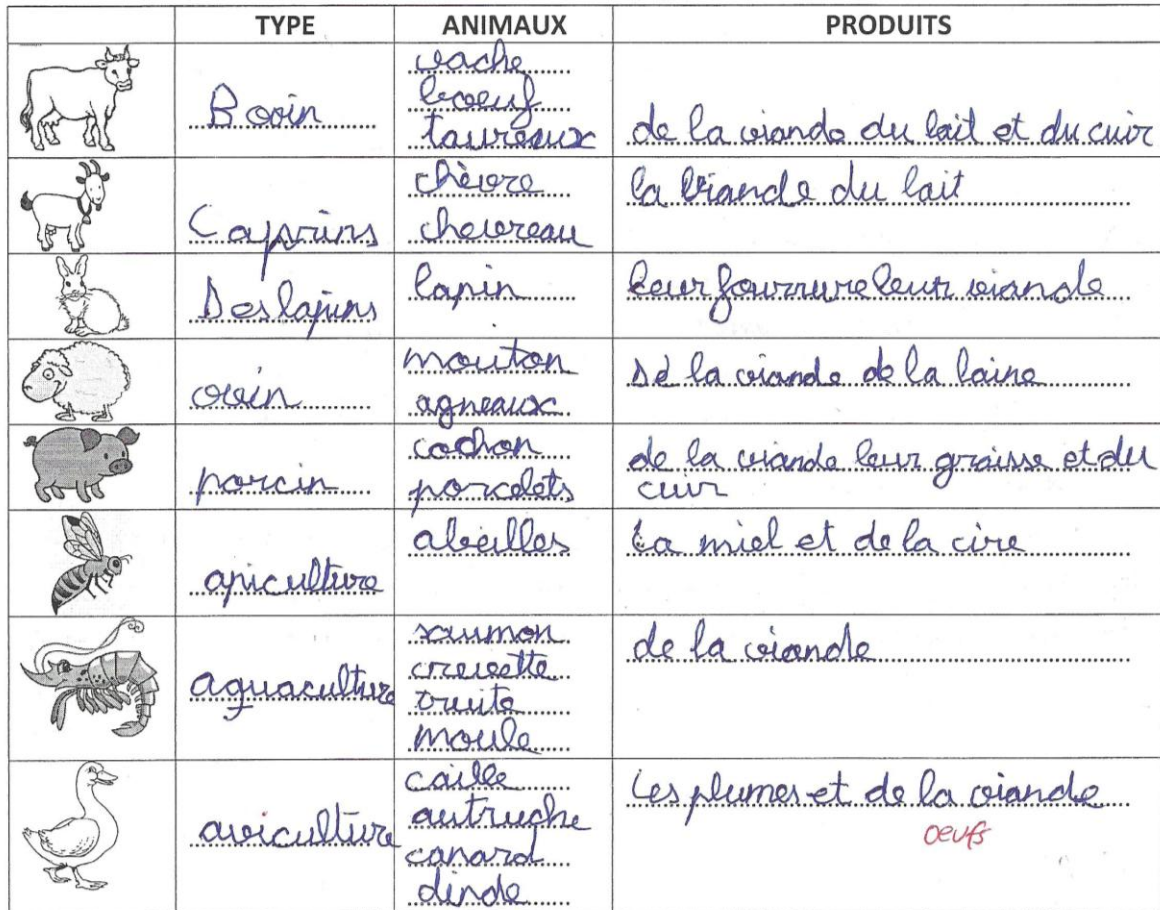 TYPE ANIMAUX PRODUITS
Bovin
vache
boeuf
taureaux
de la viande du lait et du cuir
Caprins
chèvre
chevreau
la viande du lait
Des lapins
lapin
leur fourrure leur viande
ovin
mouton
agneaux
De la viande de la laine
porcin
cochon
porcelets
de la viande leur graisse et du
cuir
apiculture
abeilles
La miel et de la cire
aquaculture
saumon
crevette
truite
moule
de la viande
aviculture
caille
autruche
canard
dinde
Les plumes et de la viande
oeufs